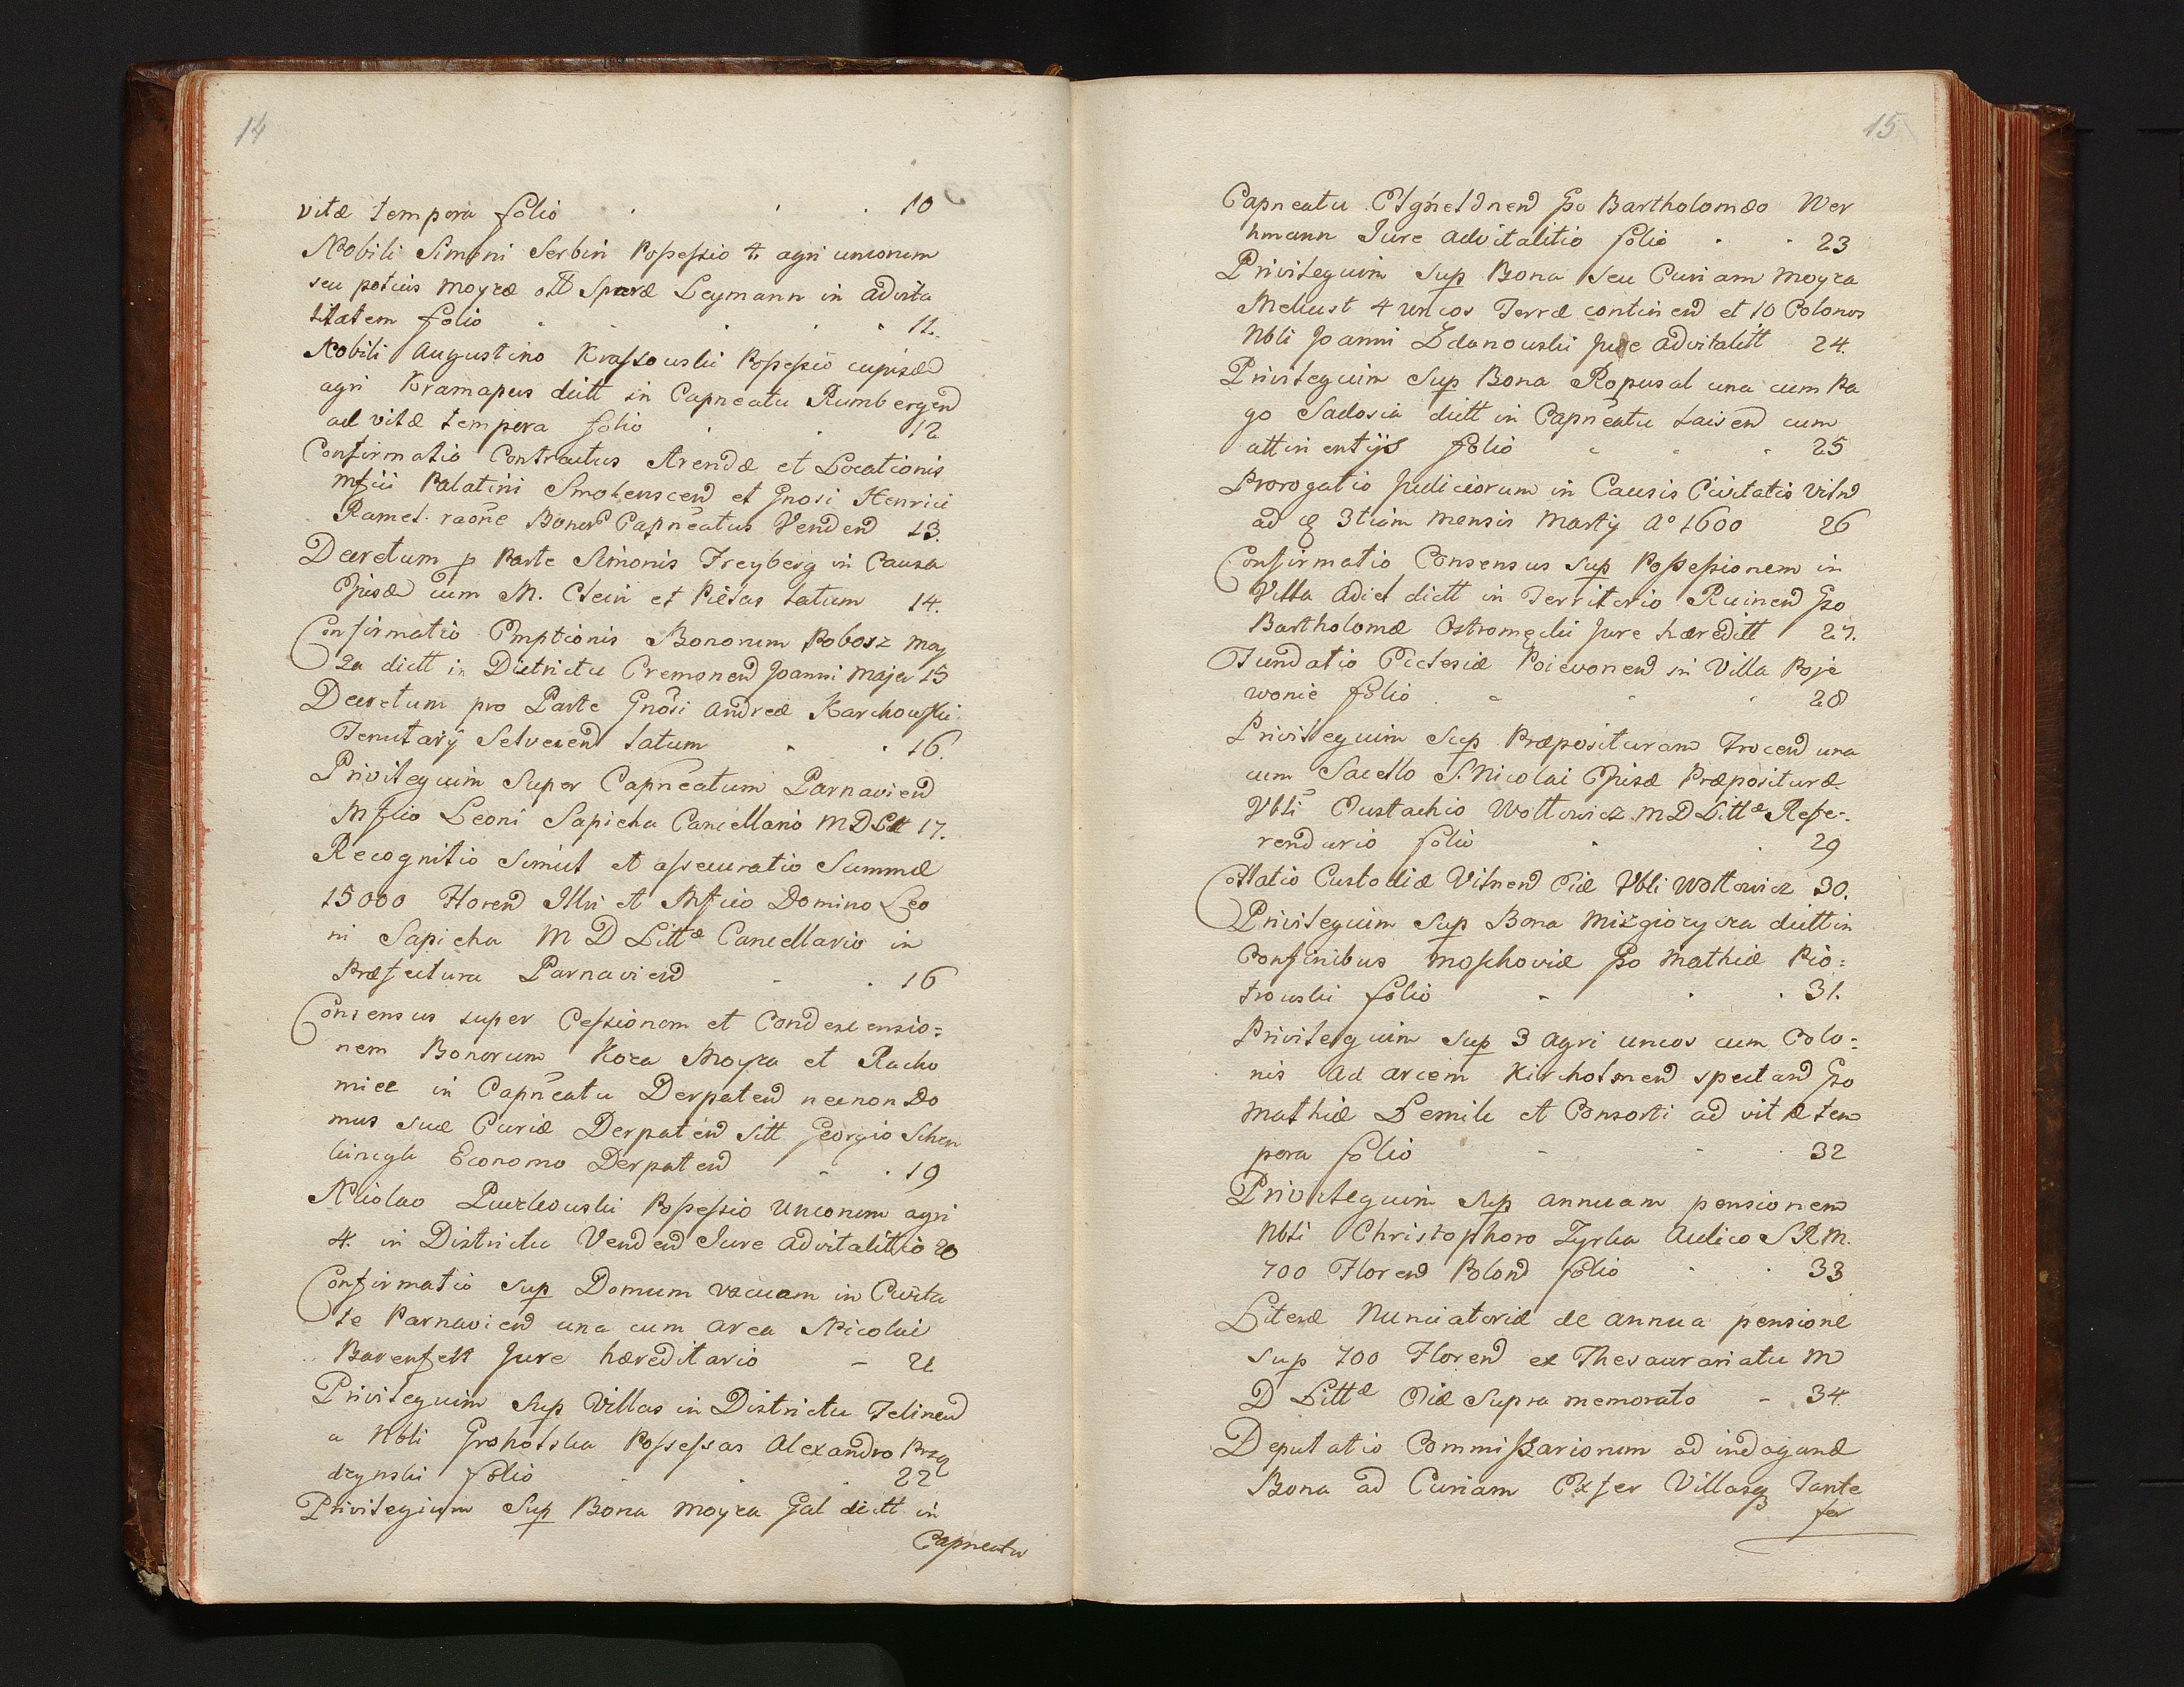 14
vitæ tempora folio . . . 10
Nobili Simoni Serbin Possessio 4 agri unconum
seu potius moyzæ Leymann in advita
litatem folio . . . . 11.
Nobili Augustino Krassouski Possessio cujusd
agri Kramapus dictt in Capneatu Rumbergen
ad vitæ tempora folio . . 12
Confirmatio Contractus Arendæ et Locationis
Mfici Palatini Smolenscen et Gnosi Henrici
Ramel raone Bonor Capneatus Venden 13.
Decretum p Parte Simonis Freyberg in Causa
Ipisæ cum M. Clein et Pieias latum 14.
Confirmatio Emptionis Bonorum Robosz moy
za dictt in Districtu Cremonen Joanni Maje 15
Decretum pro Parte Gnosi Andreæ Karchouski
Tenutarij Selvecen latum . . 16.
Privilegium super Capneatum Parnavien
Mfico Leoni Sapieha Cancellario MD Litt 17.
Recognitio simul et assecuratio Summæ
15000 Floren Illri et Mfico Domino Leo
ni Sapieha M D Littæ Cancellario in
Præfectura Parnavien - . 16
Consensus super Cessionem et Condescensio=
nem Bonorum Koza Moyza et Racho
mice in Capneatu Derpaten necnon Do
mus suæ Curiæ Derpaten sitt Georgio Schen
kingk Economo Derpaten - . 19
Nicolao Possessio Unconum agri
4. in Districtu Venden Jure advitalitio 20
Confirmatio Sup Domum vacuam in Civita
te Parnavien una cum area Nicolai
Barenfelt Jure hæreditario - 21
Privilegium Sup Villas in Districtu Felinen
a Nbli Grohotska Possessas Alexandro Prza
dzynski folio . . . 22
Privilegium Sup Bona moyza Gal dictt in
Capneatu
15
Capneatu Bartholomæo Wer
hmann Jure advitalitio folio . . 23
Privilegium Sup Bona seu Curiam moyza
Mekust 4 uncos Terræ continen et 10 Colonos
Nbli Joanni Zdanouski Jure advitalitt 24.
Privilegium Sup Bona Ropusal una cum Pa
go Sadosia dictt in Capneatu Laisen cum
attinentijs folio . . . 25
Prorogatio Judiciorum in Causis Civitatis Viln
ad 3tiam mensis Martij Aº 1600 26
Confirmatio Consensus Sup Possessionem in
Villa Adiel dictt in Territorio Ruinen Gso
Bartholomæ Ostromęcki Jure hæreditt 27.
Fundatio Ecclesiæ Poievonen in Villa Poje
wonie folio . - . . 28
Privilegium Sup Præposituram Trocen una
cum Sacello S. Nicolai Ipisæ Præposituræ
Vbli Eustachio Wollowicz M D Littæ Refe-
rendario folio . . 29
Collatio Custodiæ Vilnen Eidæ Vbli Wollowicz 30.
Privilegium Sup Bona Mizgiorycza dictt in
Confinibus Moschoviæ Gso Mathiæ Pio=
trouski folio - . . 31.
Privilegium Sup 3 agri uncos cum Colo=
nis ad arcem Kircholmen spectan Gso
Mathiæ Lemik et Consorti ad vitæ tem
pora folio - - . 32
Privilegium Sup annuam pensionem
Nbli Christophoro Zyrka Aulico S R M.
700 Floren Polon folio . . 33
Literæ Nunciatoriæ de annua pensione
sup 700 Floren ex Thesaurariatu M
D Littæ Eidæ Supra memorato - 34.
Deputatio Commissariorum ad indagand
Bona ad Curiam Exfer Villasq Tante
fer